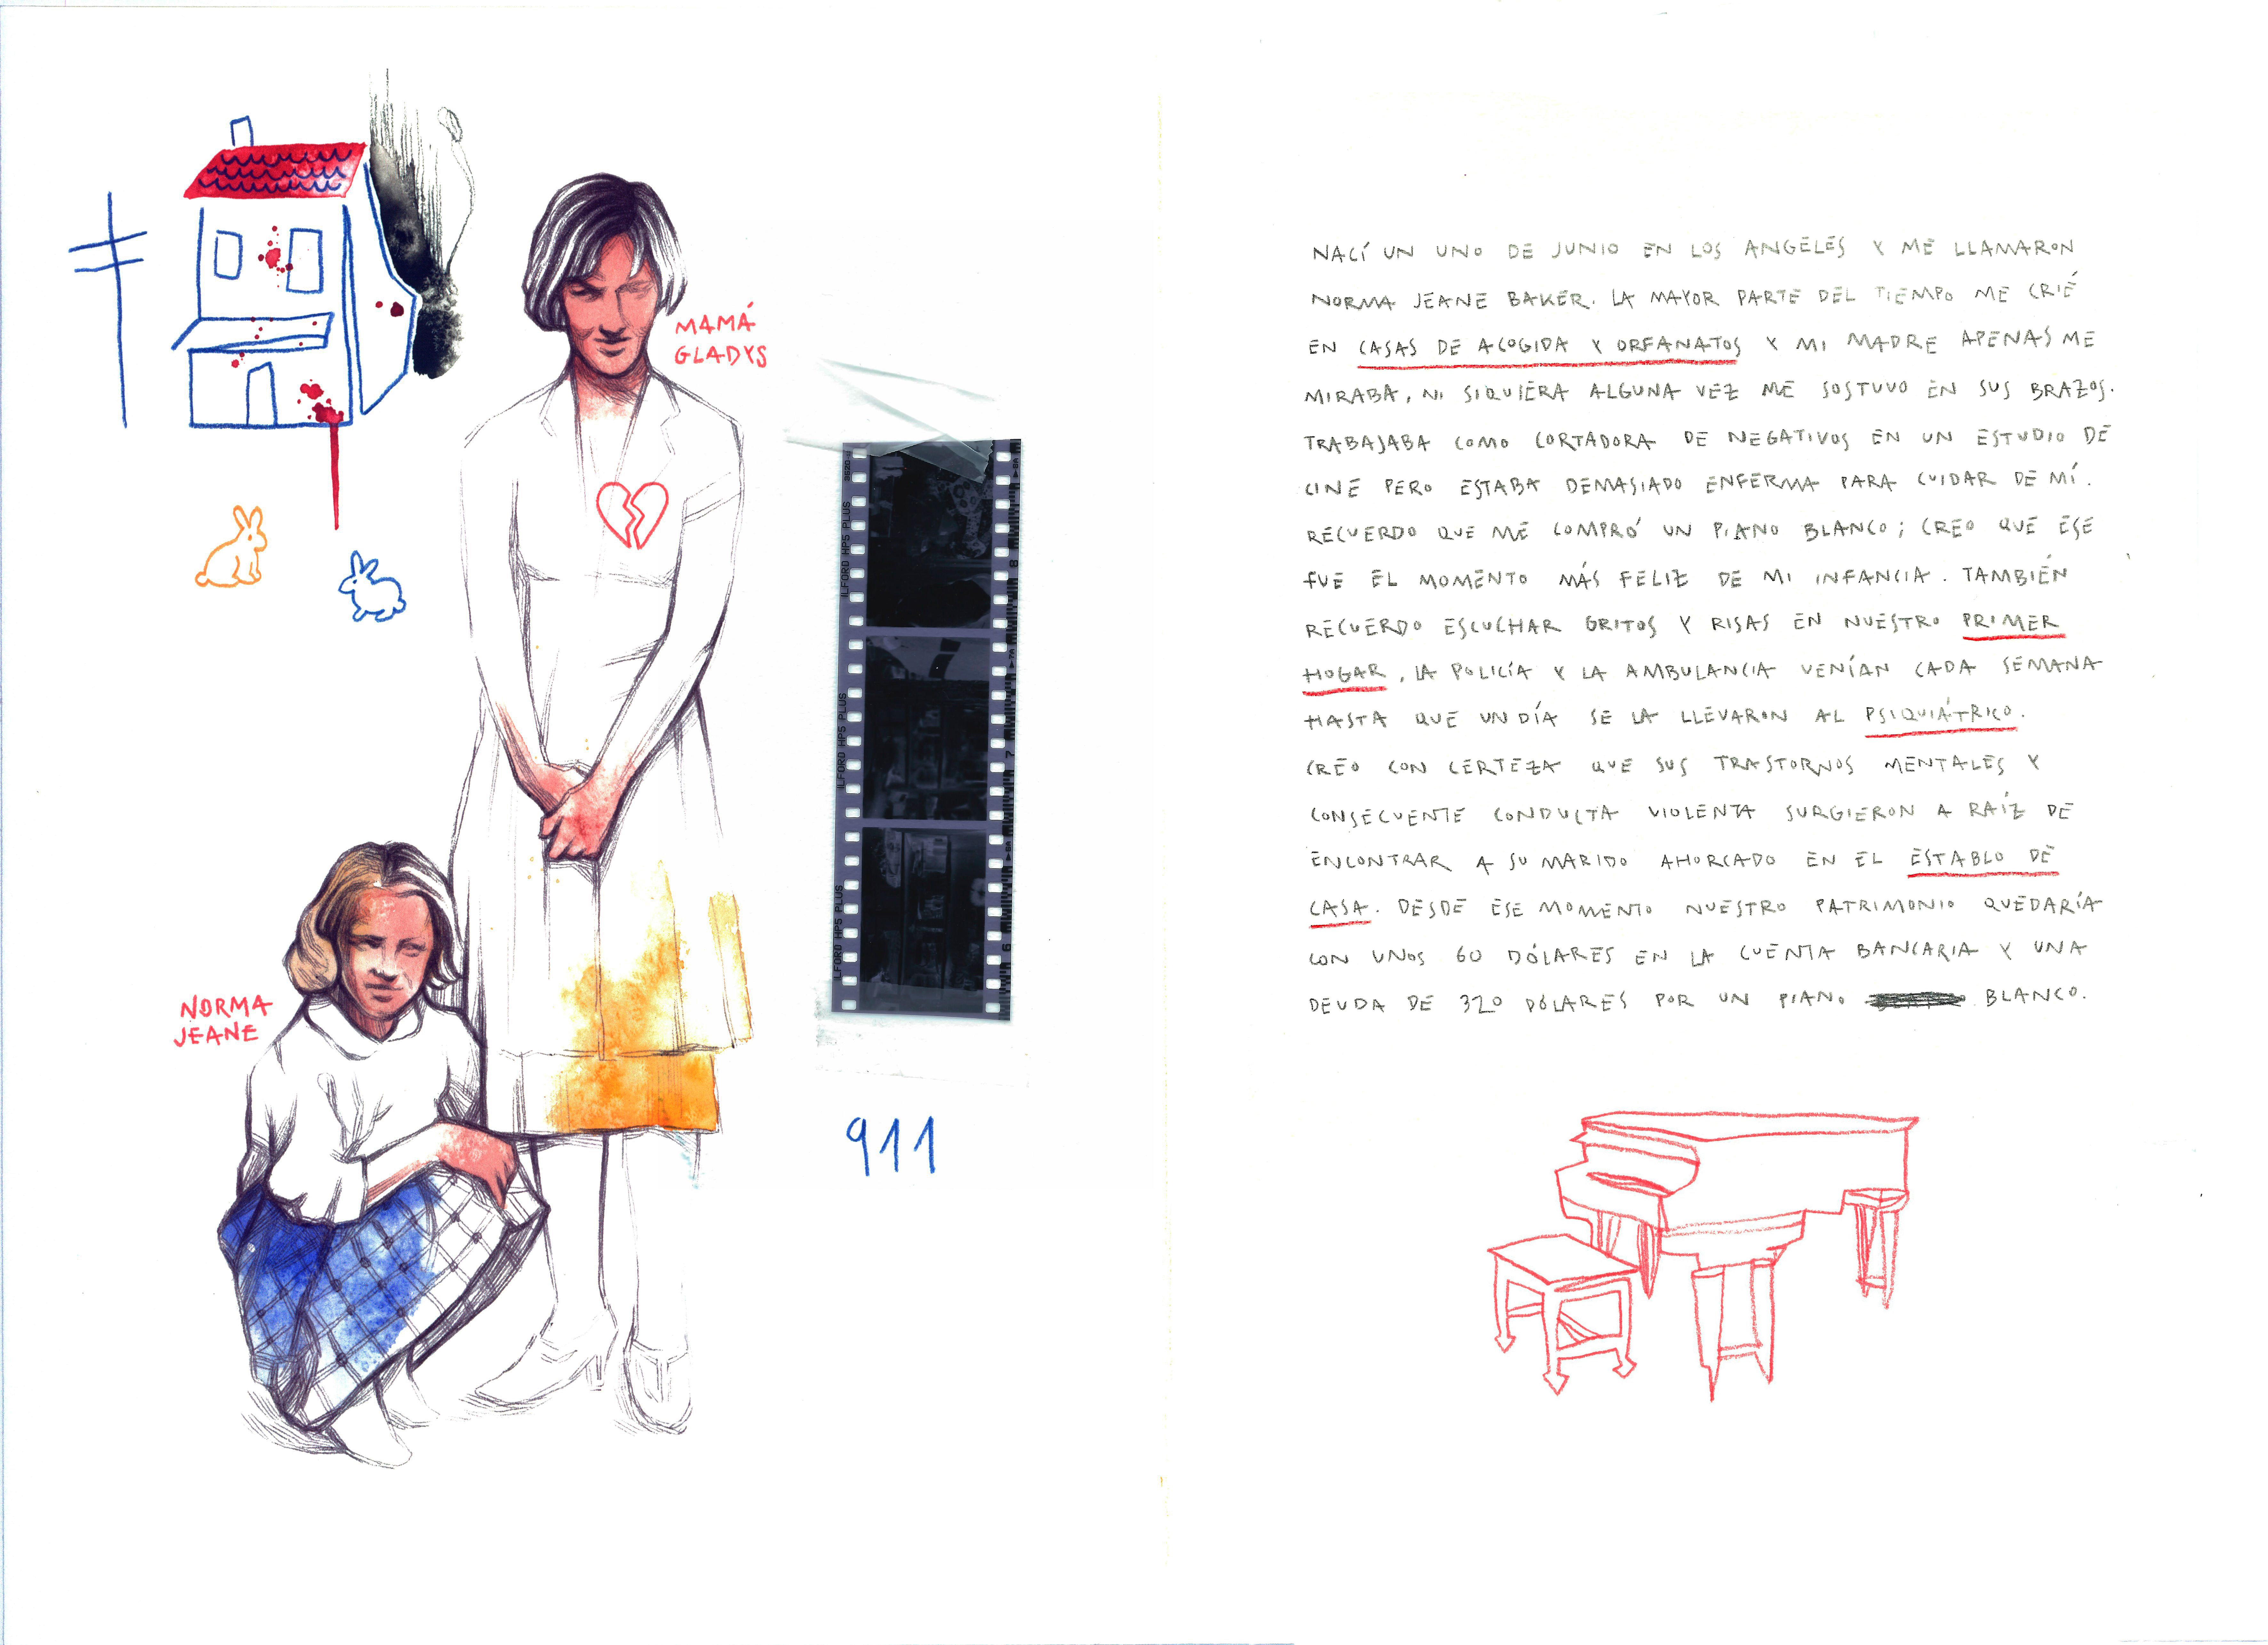 MAMÁ
GLADYS
NORMA
JEANE
ILFORD HP5 PLUS
ILFORD HP5 PLUS
ILFORD HP5 PLUS
911
NACÍ UN UNO DE JUNIO EN LOS ANGELES Y ME LLAMARON
NORMA JEANE BAKER. LA MAYOR PARTE DEL TIEMPO ME CRIÉ
EN CASAS DE ACOGIDA Y ORFANATOS Y MI MADRE APENAS ME
MIRABA, NI SIQUIERA ALGUNA VEZ ME SOSTUVO EN SUS BRAZOS.
TRABAJABA COMO CORTADORA DE NEGATIVOS EN UN ESTUDIO DE
CINE PERO ESTABA DEMASIADO ENFERMA PARA CUIDAR DE MÍ.
RECUERDO QUE ME COMPRÓ UN PIANO BLANCO; CREO QUE ESE
FUE EL MOMENTO MÁS FELIZ DE MI INFANCIA. TAMBIÉN
RECUERDO ESCUCHAR GRITOS Y RISAS EN NUESTRO PRIMER
HOGAR, LA POLICÍA Y LA AMBULANCIA VENÍAN CADA SEMANA
HASTA QUE UN DÍA SE LA LLEVARON AL PSIQUIÁTRICO.
CREO CON CERTEZA QUE SUS TRASTORNOS MENTALES Y
CONSECUENTE CONDUCTA VIOLENTA SURGIERON A RAÍZ DE
ENCONTRAR A SU MARIDO AHORCADO EN EL ESTABLO DE
CASA. DESDE ESE MOMENTO NUESTRO PATRIMONIO QUEDARÍA
CON UNOS 60 DÓLARES EN LA CUENTA BANCARIA Y UNA
DEUDA DE 320 DÓLARES POR UN PIANO BLANCO.